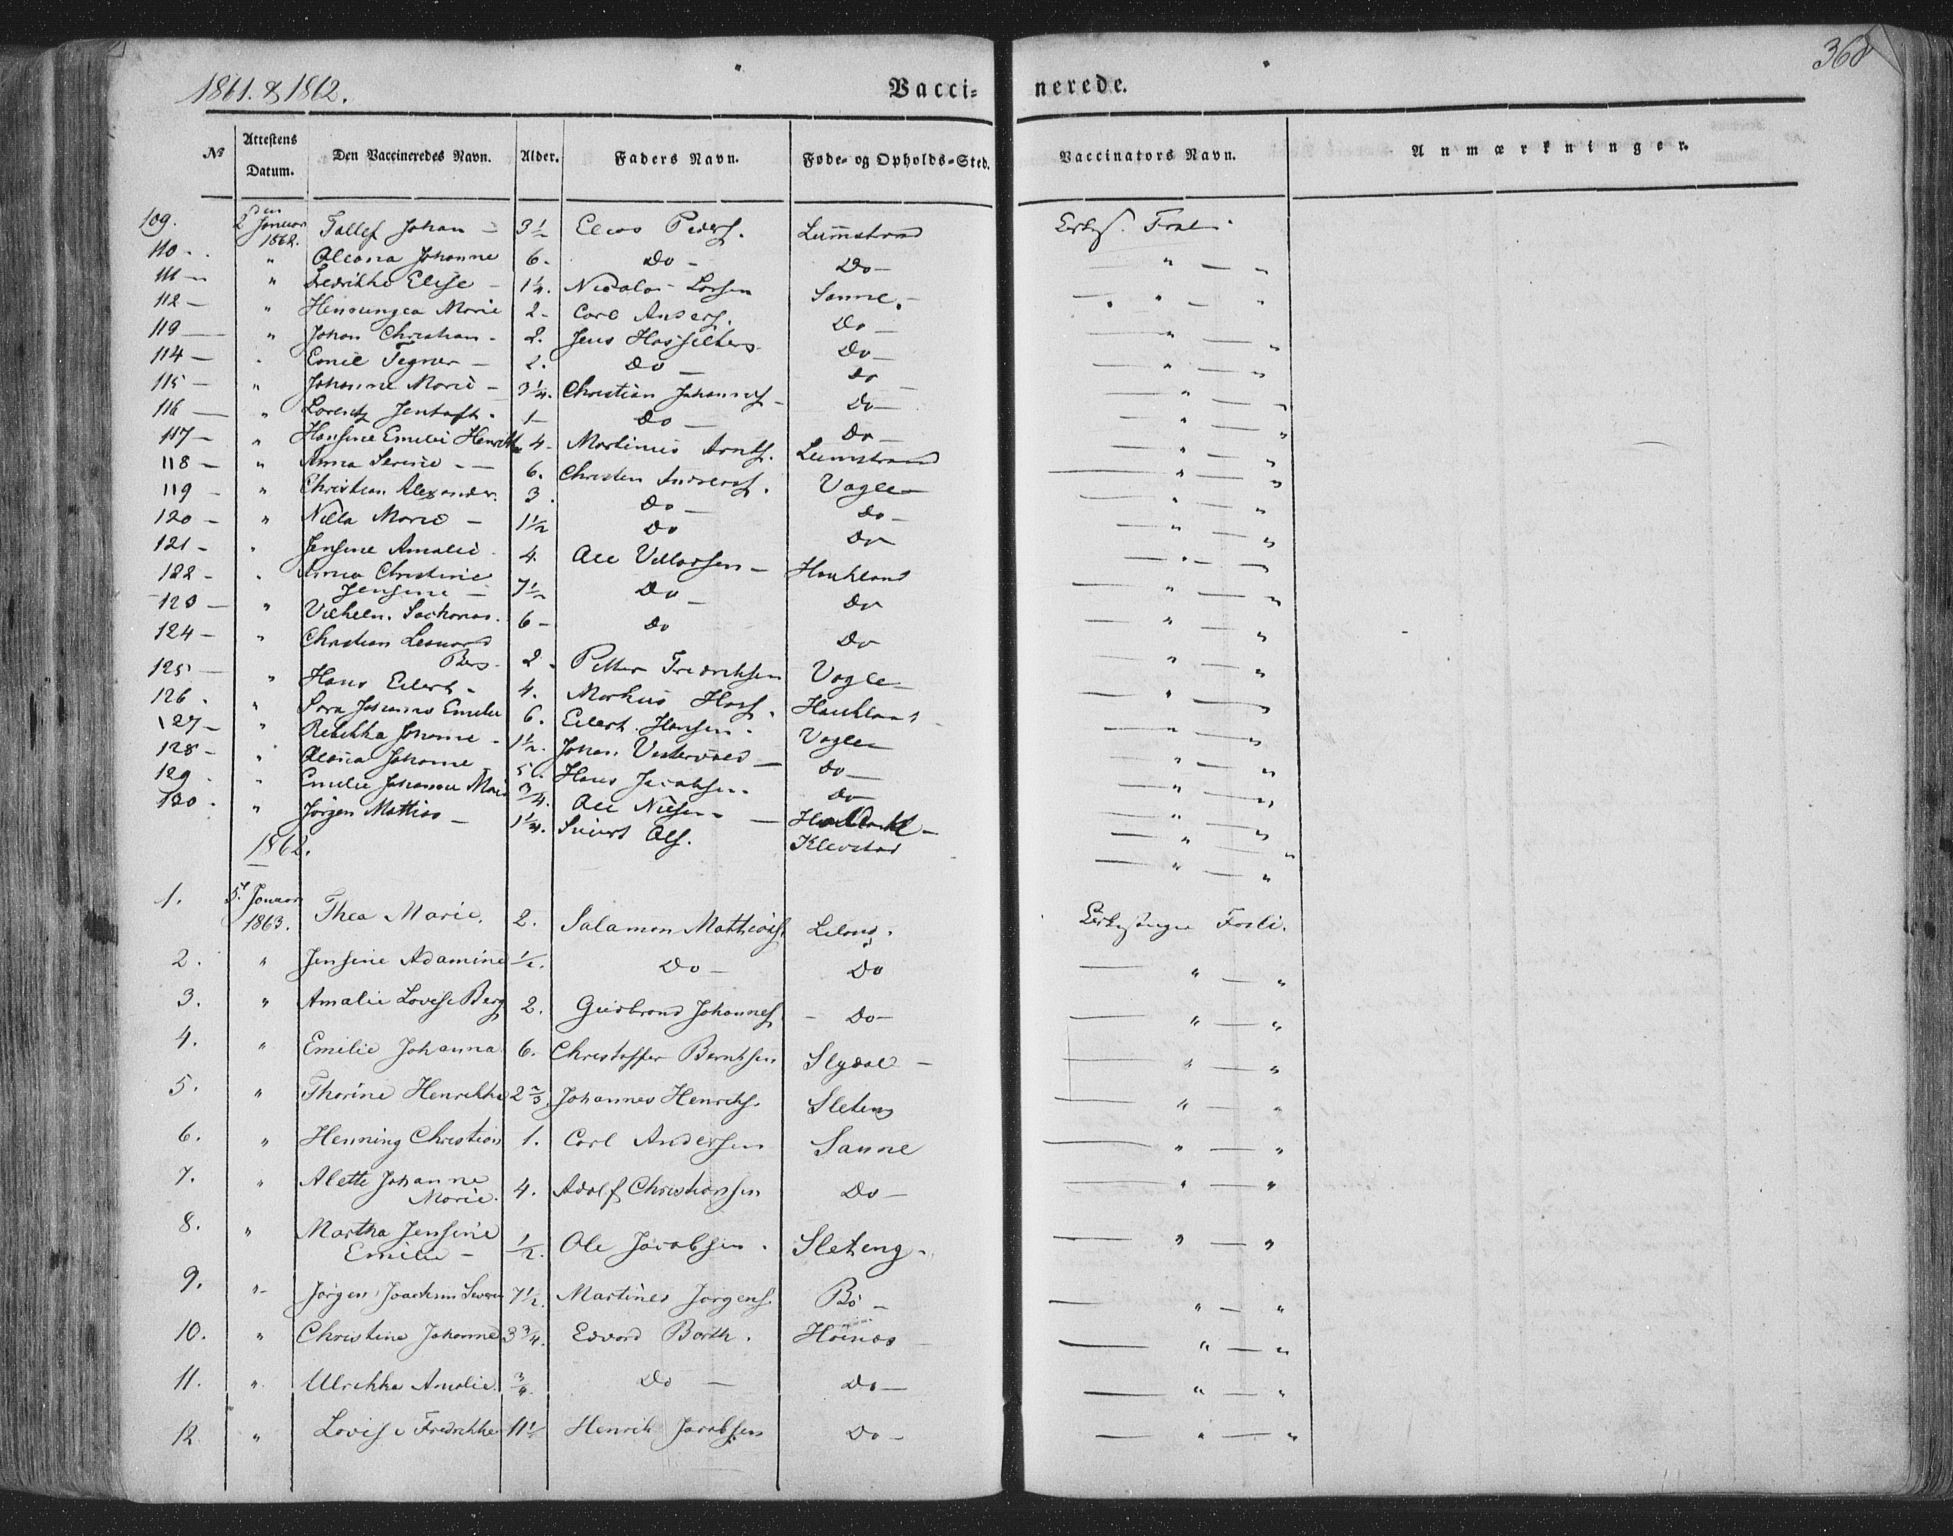 1861. & 1862.
Vacci- nerede.
368
No
Attestens Datum.
Den Vaccineredes Navn.
Alder.
Faders Navn.
Føde- og Opholds-Sted.
Vaccinators Navn.
Anmærkninger.
109. 2den Januar 1862. Tollef Johan — 3 1/2 Elias Peders. Lumstrand
110 - " Oleana Johanne 6. Do — Do —
111 — " Fredrikke Elise — 1 1/4. Nicolai Larsen Sanne. -
112 — " Marie 2 - Carl Anders. Do —
113 — " Johan Christian - 2. Jens Do —
114 — " Emil Tegner — 2. Do — Do —
115 — " Johanne Marie — 3 1/4. Christian Johannes. Do —
116 — " Lorentz Jentoft. 1 — Do — Do —
117 — " Hansine Emilie Henrikke 4. Martinus Arnts. Lumstrand
118 — " Anna Serine — 6. Christen Anders. Vagle —
119 — " Christian Alexander. 3. Do — Do —
120 — " Nilla Marie — 1 1/2 Do Do
121 - " Jensine Amalie 4. Ole Villassen — Haukland
122 - " Anna Christine Jensine — 7 1/2 Do — Do
123 — " Vilhelm Sachorias. 6 — Do Do
124 — " Christian Leonard Berg - 2. Petter Fredriksen Vagle —
125 — " Hans Eilert - 4. Markus Hans. Haukland
126. " Sara Johanna Emilie 6. Eilert Hansen. Vagle —
127 — " Rebekka Johanne - 1 1/2. Johan Do —
128 — " Oleana Johanne 5 Hans Jacobsen. Do —
129. " Emilie Johanna Marie 3/4. Ole Nilsen —
130. " Jørgen Mathias — 1 1/4. Sivert Ols. Klevstad
Fosli
1862.
1. 5te Januar 1863. Thea Marie. 2. Salamon Mathias. Leland. Fosli.
2. " Jensine Adamine 1/2. Do — Do
3. " Amalie Lovise Berg 2. Gudbrand Johannes. — Do —
4. " Emilie Johanna 6. Christoffer Berntsen Slydal —
5. " Thorine Henrikke 2 2/3. Johannes Henriks. Sleteng
6. " Henning Christian 1. Carl Andersen Sanne
7. " Alette Johanne Marie. 4. Adolf Christiansen Do —
8. " Martha Jensine Emilie — 1/2. Ole Jacobsen. Sleteng.
9. " Jørgen Joachim Severin 7 1/2. Martines Jørgens. Bø —
10. " Christine Johanne 3 3/4. Edvard Barth. Høinæs —
11. " Ulrikka Amalie. 3/4. Do — Do —
12 " Lovise Fredrikke 11 1/2 Henrik Jacobsen Do —